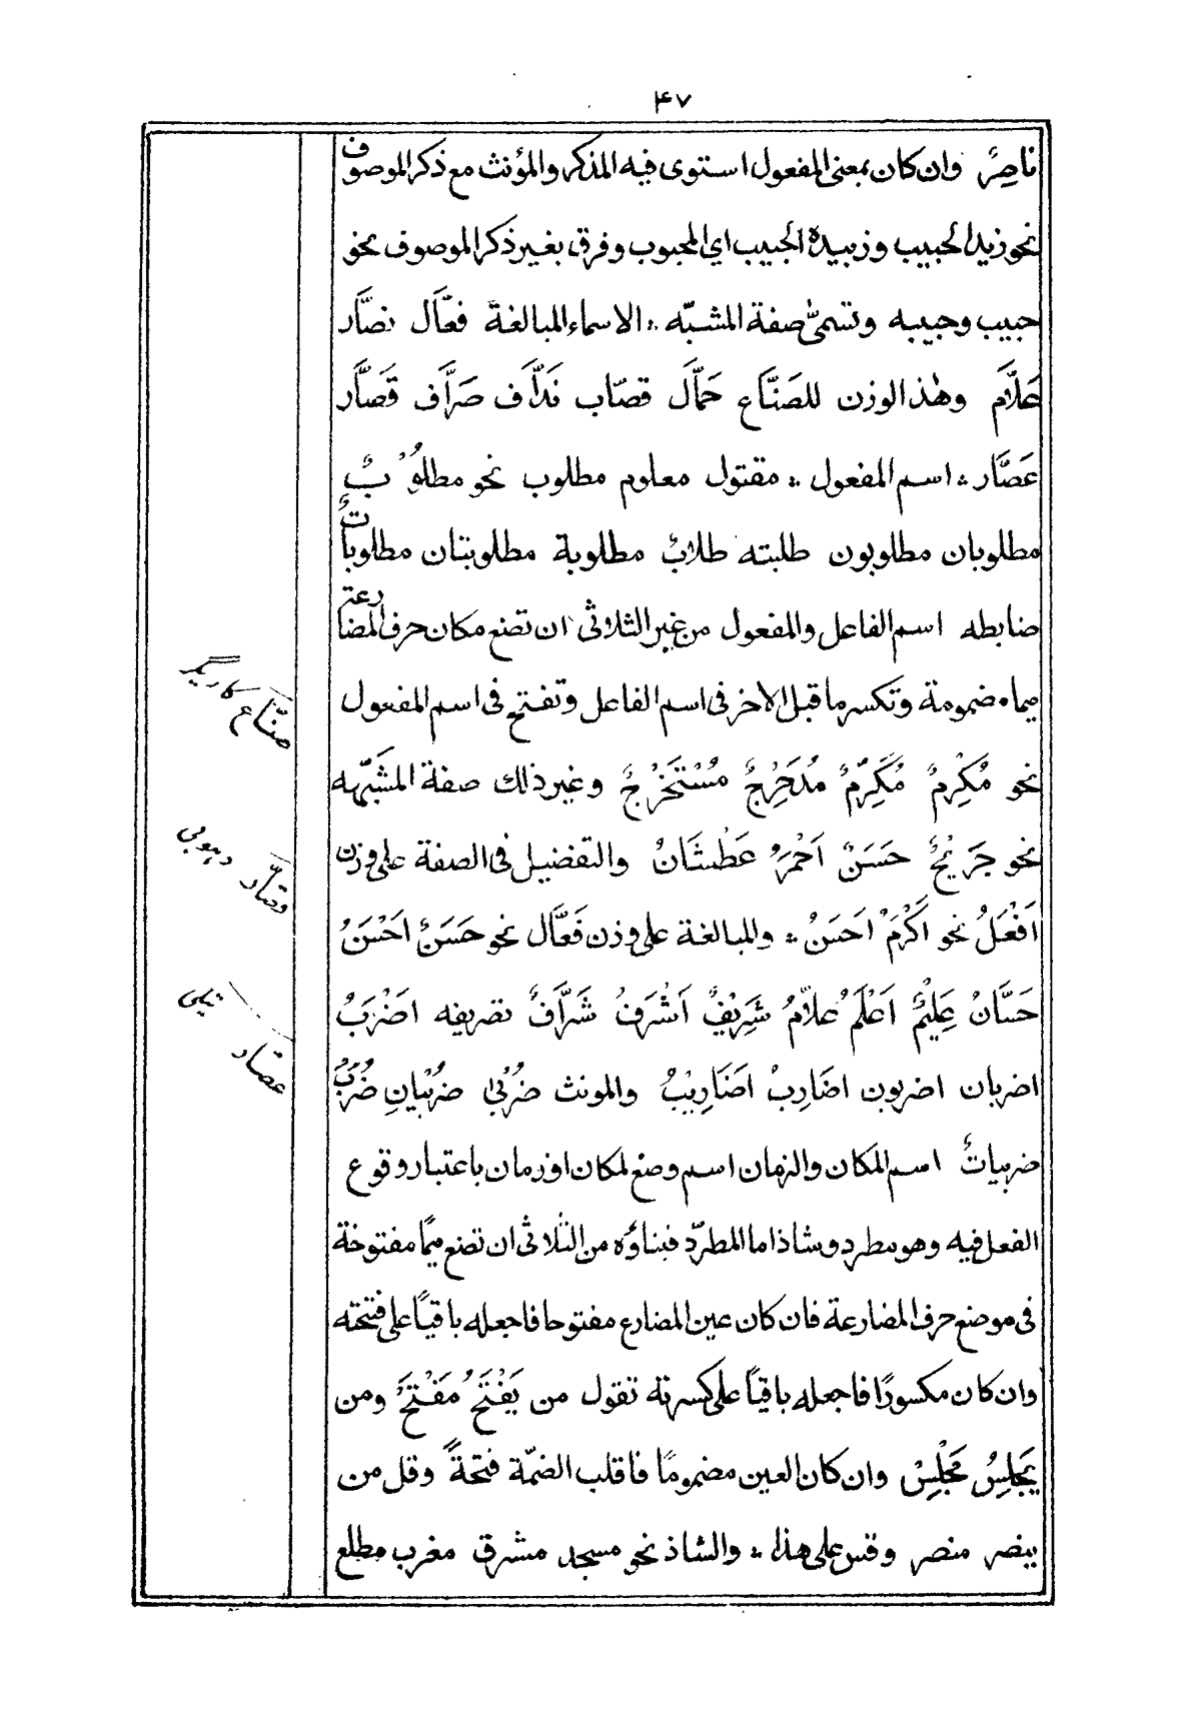 ۴۷
ناصِرٌ وان كان بمعنى المفعول استوى فيه المذكر والمؤنث مع ذكر الموصوف
نحو زيد الحبيب وزبيدة الحبيب اي المحبوب وفرق بغير ذكر الموصوف نحو
حبيب وحبيبه وتسمىٰ صفة المشبّه ؞ الاسماء المبالغة فعَّال نصَّار
عَلَّام وهٰذ الوزن للصَنَّاع حَمَّال قصّاب نَدَّاف صَرَّاف قَصَّار
عَصَّار ؞ اسم المفعول ؞ مقتول معلوم مطلوب نحو مطلُوْبٌ
مطلوبان مطلوبون طلبته طلابٌ مطلوبة مطلوبتان مطلوباتٌ
ضابطه اسم الفاعل والمفعول من غير الثلاثى ان تضع مكان حرف المضارعة
ميما مضمومة وتكسر ما قبل الاخر فى اسم الفاعل وتفتح فى اسم المفعول
نحو مُكْرِمٌ مُكَرِّمٌ مُدَحْرِجٌ مُسْتَخْرِجٌ وغير ذلك صفة المشَبّهه
نحو جَرِيْحٌ حَسَنٌ اَحْمَرُ عَطْشَانُ والتفضيل فى الصفة على وزن
اَفْعَلُ نحو اَكْرَمُ اَحسَنُ ؞ والمبالغة على وزن فَعَّال نحو حَسَنٌ اَحْسَنُ
حَسَّانٌ عَلِيْمٌ اَعْلَمُ علّامٌ شَرِيْفٌ اَشْرَفُ شَرَّافٌ تصريفه اضْرَبُ
اضربان اضربون اضَارِبُ اضَارِيْبُ والمونث ضُرْبٰى ضُرْبَيانِ ضُرَبٌ
ضربياتٌ اسم المكان والزمان اسم وضع لمكان او زمان باعتبار وقوع
الفعل فيه وهو مطرد وشاذ اما المطرّد فبناؤه من الثلاثى ان تضع ميمًا مفتوحة
فى موضع حرف المضارعة فان كان عين المضارع مفتوحا فاجعله باقيًا على فتحته
وان كان مكسورًا فاجعله باقيًا على كسرته تقول من يَفْتَحُ مَفْتَحٌ ومن
يَجْلِسُ مَجْلِسٌ وان كان العين مضمومًا فاقلب الضمّة فتحةً وقل من
ينصر منصر وقس على هذا ؞ والشاذ نحو مسجد مشرق مغرب مطلع
صنّاع كاريگر
قصّار دہوبى
عصّار تيلى